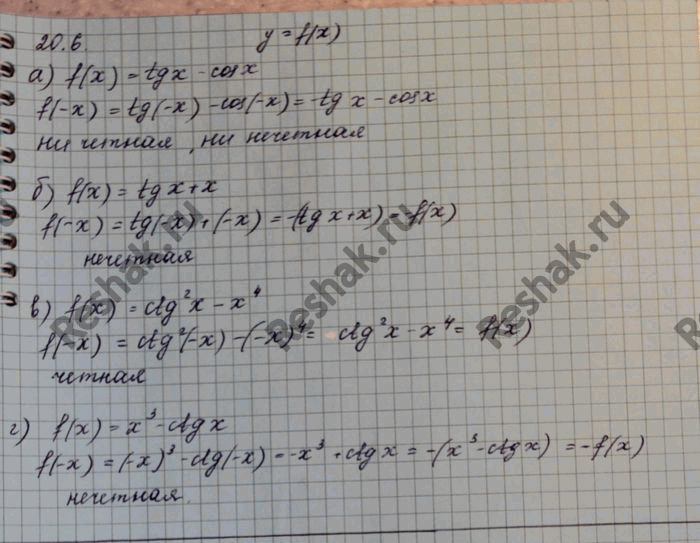 20.6. y = f(x)
а) f(x) = tg x - cos x
f(-x) = tg(-x) - cos(-x) = -tg x - cos x
ни четная, ни нечетная
б) f(x) = tg x + x
f(-x) = tg(-x) + (-x) = -(tg x + x) = -f(x)
нечетная
в) f(x) = ctg²x - x⁴
f(-x) = ctg²(-x) - (-x)⁴ = ctg²x - x⁴ = f(x)
четная
г) f(x) = x³ - ctg x
f(-x) = (-x)³ - ctg(-x) = -x³ + ctg x = -(x³ - ctg x) = -f(x)
нечетная.
Reshak.ru
Reshak.ru
Reshak.ru